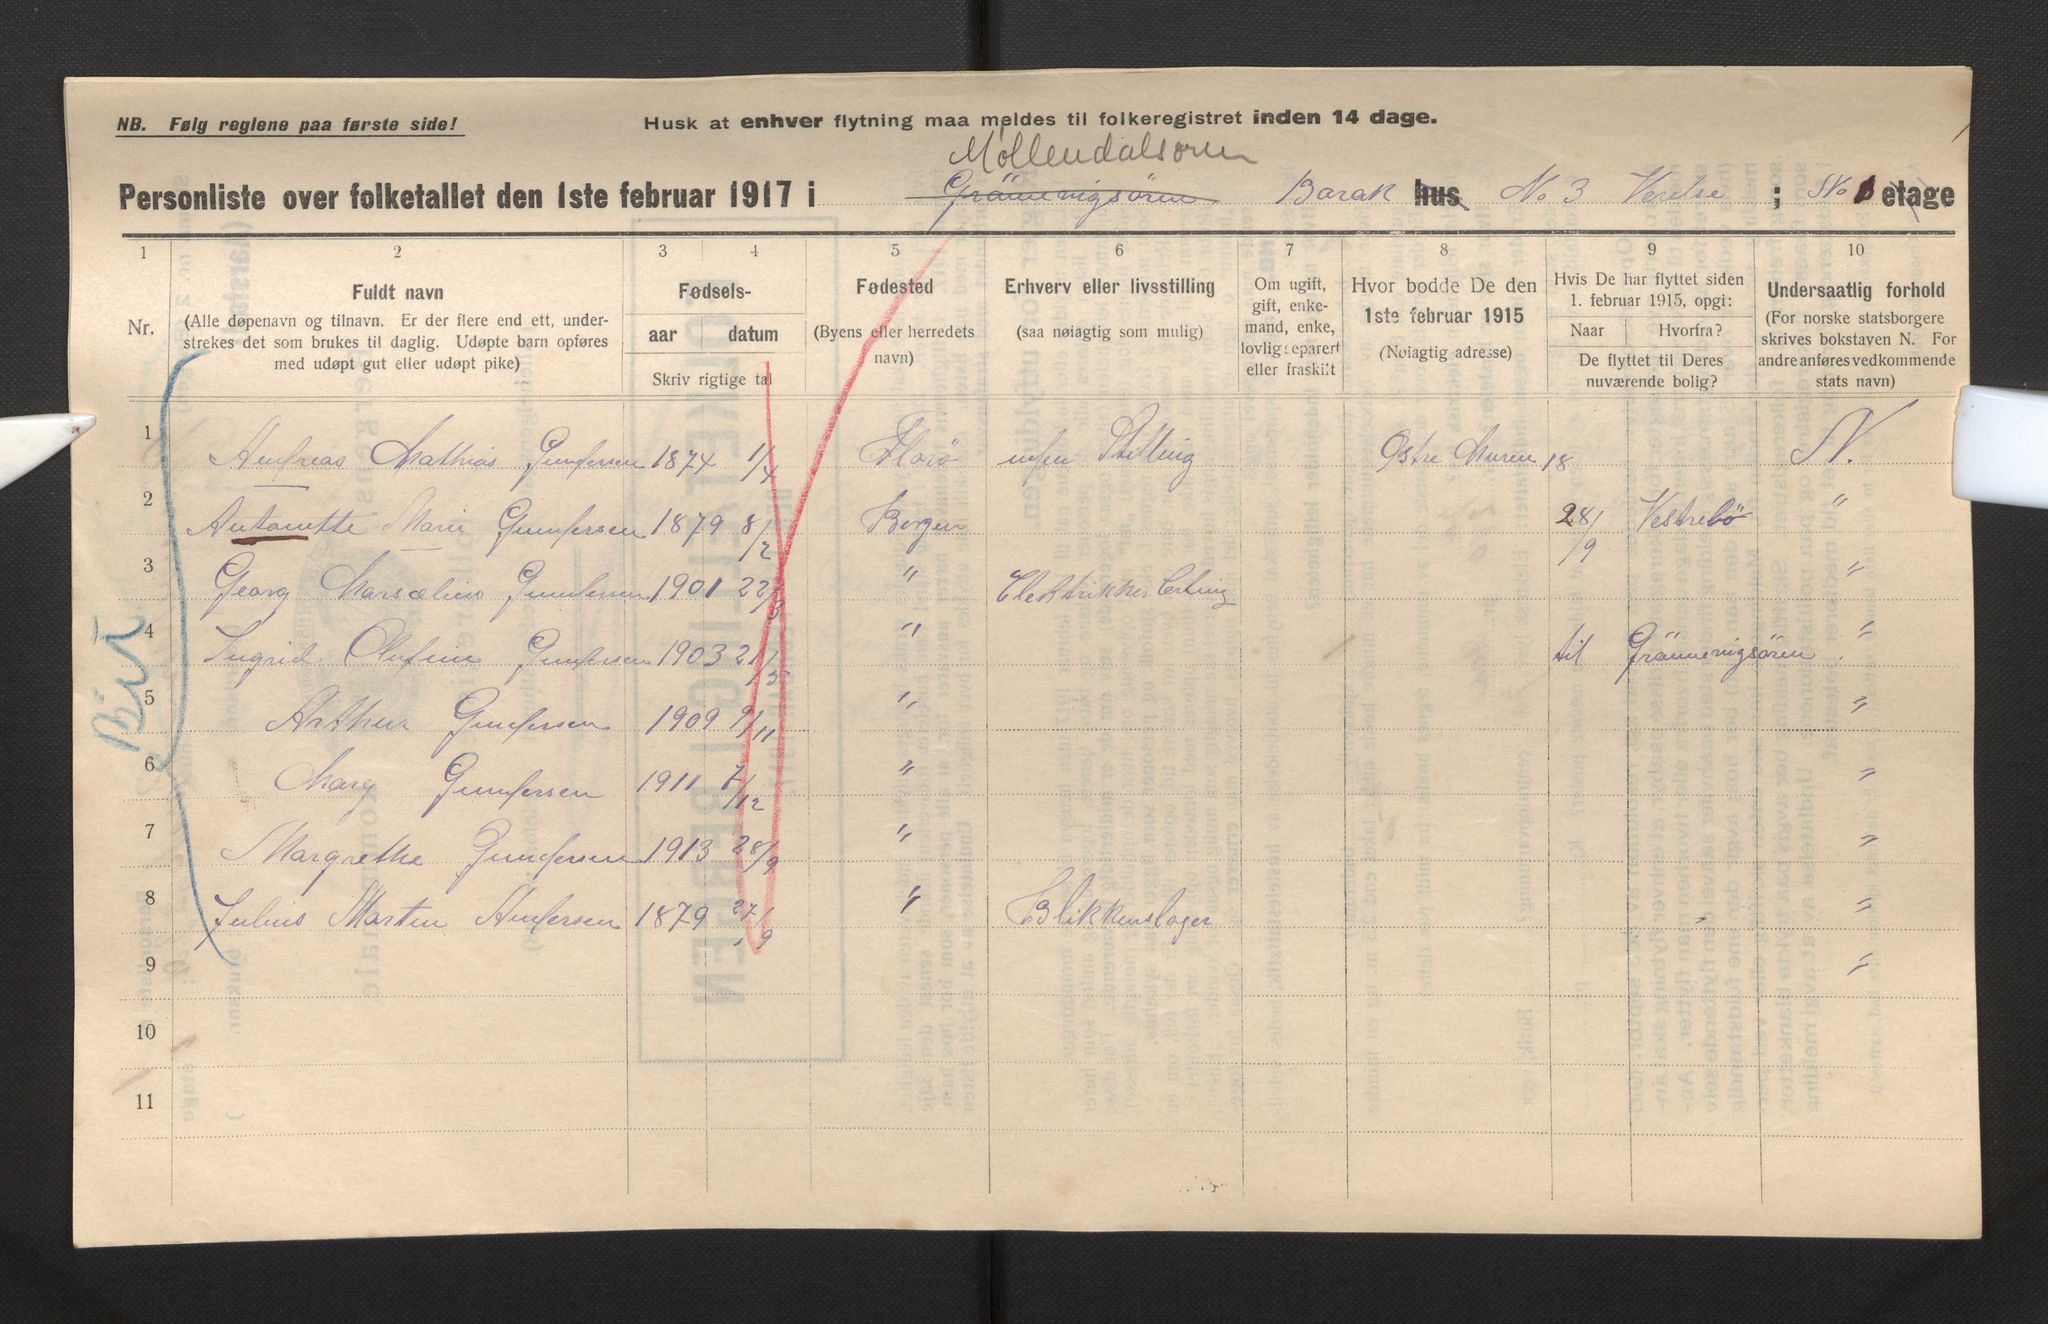 NB. Følg reglene paa første side!
Husk at enhver flytning maa meldes til folkeregistret inden 14 dage.
Møllendalsøren
Personliste over folketallet den 1ste februar 1917 i Grønnevigsøren Barak hus No 3 ; No etage
1 2 3 4 5 6 7 8 9 10
Nr.
Fuldt navn
(Alle døpenavn og tilnavn. Er der flere end ett, under-
strekes det som brukes til daglig. Udøpte barn opføres
med udøpt gut eller udøpt pike)
Fødsels-
aar datum
Skriv rigtige tal
Fødested
(Byens eller herredets
navn)
Erhverv eller livsstilling
(saa nøiagtig som mulig)
Om ugift,
gift, enke-
mand, enke,
lovlig separert
eller fraskilt
Hvor bodde De den
1ste februar 1915
(Nøiagtig adresse)
Hvis De har flyttet siden
1. februar 1915, opgi:
Naar Hvorfra?
De flyttet til Deres
nuværende bolig?
Undersaatlig forhold
(For norske statsborgere
skrives bokstaven N. For
andre anføres vedkommende
stats navn)
1 Andreas Mathias Gundersen 1874 1/4 Florø uden Stilling Østre Muren 18 N.
2 Antonette Marie Gundersen 1879 8/2 Bergen 28/9 Vestrebø "
3 Georg Marselius Gundersen 1901 22/3 " Elektrikker "
4 Ingrid Olufine Gundersen 1903 21/5 " til Grønnevigsøren. "
5 Arthur Gundersen 1909 9/11 " "
6 Mary Gundersen 1911 7/12 " "
7 Margrethe Gundersen 1913 28/9 " "
8 Julius Martin Andersen 1879 27/9 " Blikkenslager "
9 "
10
11